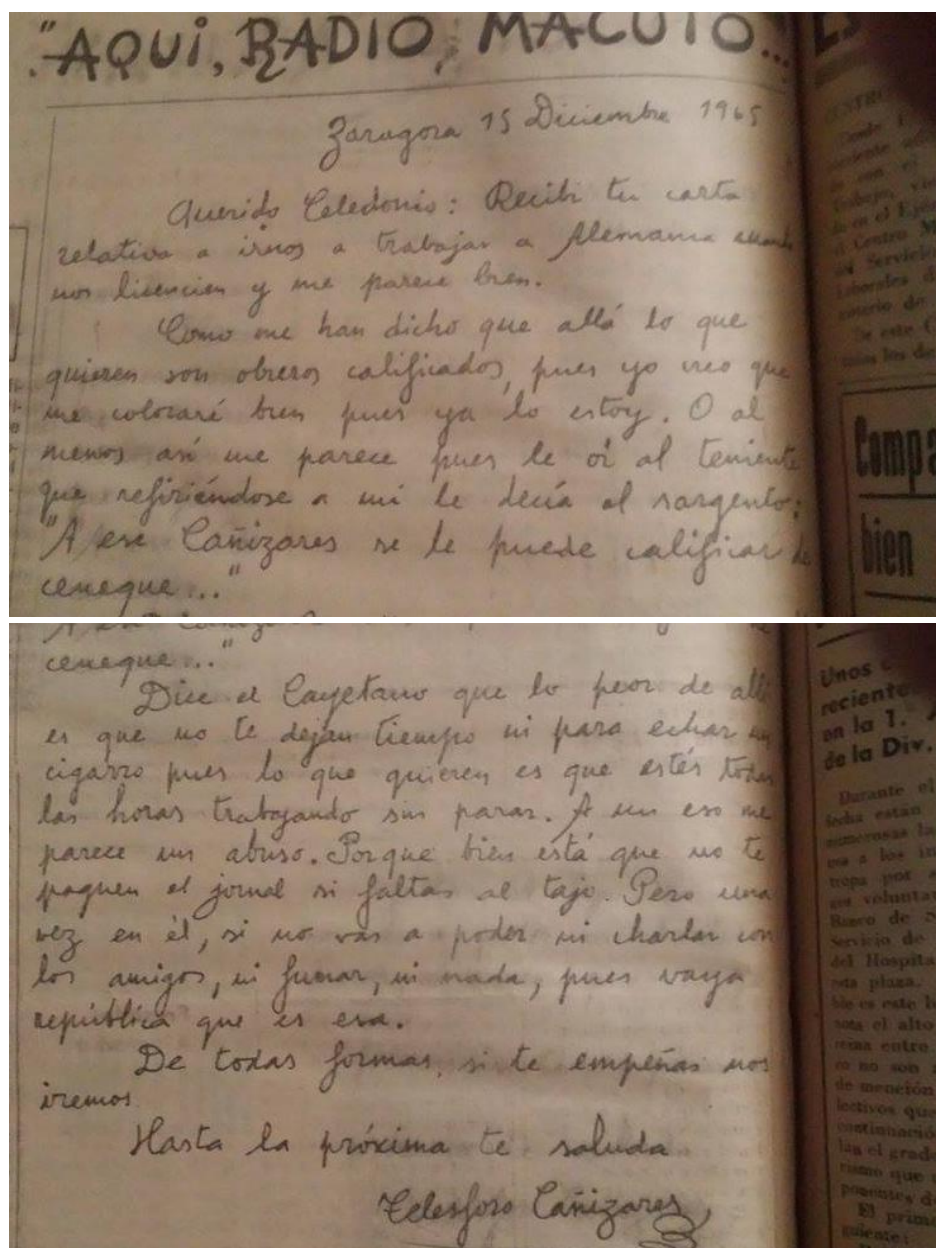 "AQUÍ, RADIO, MACUTO...
Zaragoza 15 Diciembre 1965
Querido Celedonio: Recibí tu carta
relativa a irnos a trabajar a Alemania cuando
nos licencien y me parece bien.
Como me han dicho que allá lo que
quieren son obreros calificados, pues yo creo que
me colocaré bien pues ya lo estoy. O al
menos así me parece pues le oí al teniente
que refiriéndose a mí le decía al sargento:
"A ese Cañizares se le puede calificar de
ceneque..."
Compa
bien
ceneque..."
Dice el Cayetano que lo peor de allí
es que no te dejan tiempo ni para echar un
cigarro pues lo que quieren es que estés todas
las horas trabajando sin parar. A mi eso me
parece un abuso. Porque bien está que no te
paguen el jornal si faltas al tajo. Pero una
vez en él, si no vas a poder ni charlar con
los amigos, ni fumar, ni nada, pues vaya
república que es esa.
De todas formas, si te empeñas nos
iremos
Hasta la próxima te saluda
Telesforo Cañizares
Unos
reciente
en la 1.
de la Div.
Durante el
fecha están
numerosas la
voluntar
Servicio de
del Hospita
esta plaza.
de mención
lectivos que
continuació
tan el grado
como que
ponentes de
El prime
guiente: